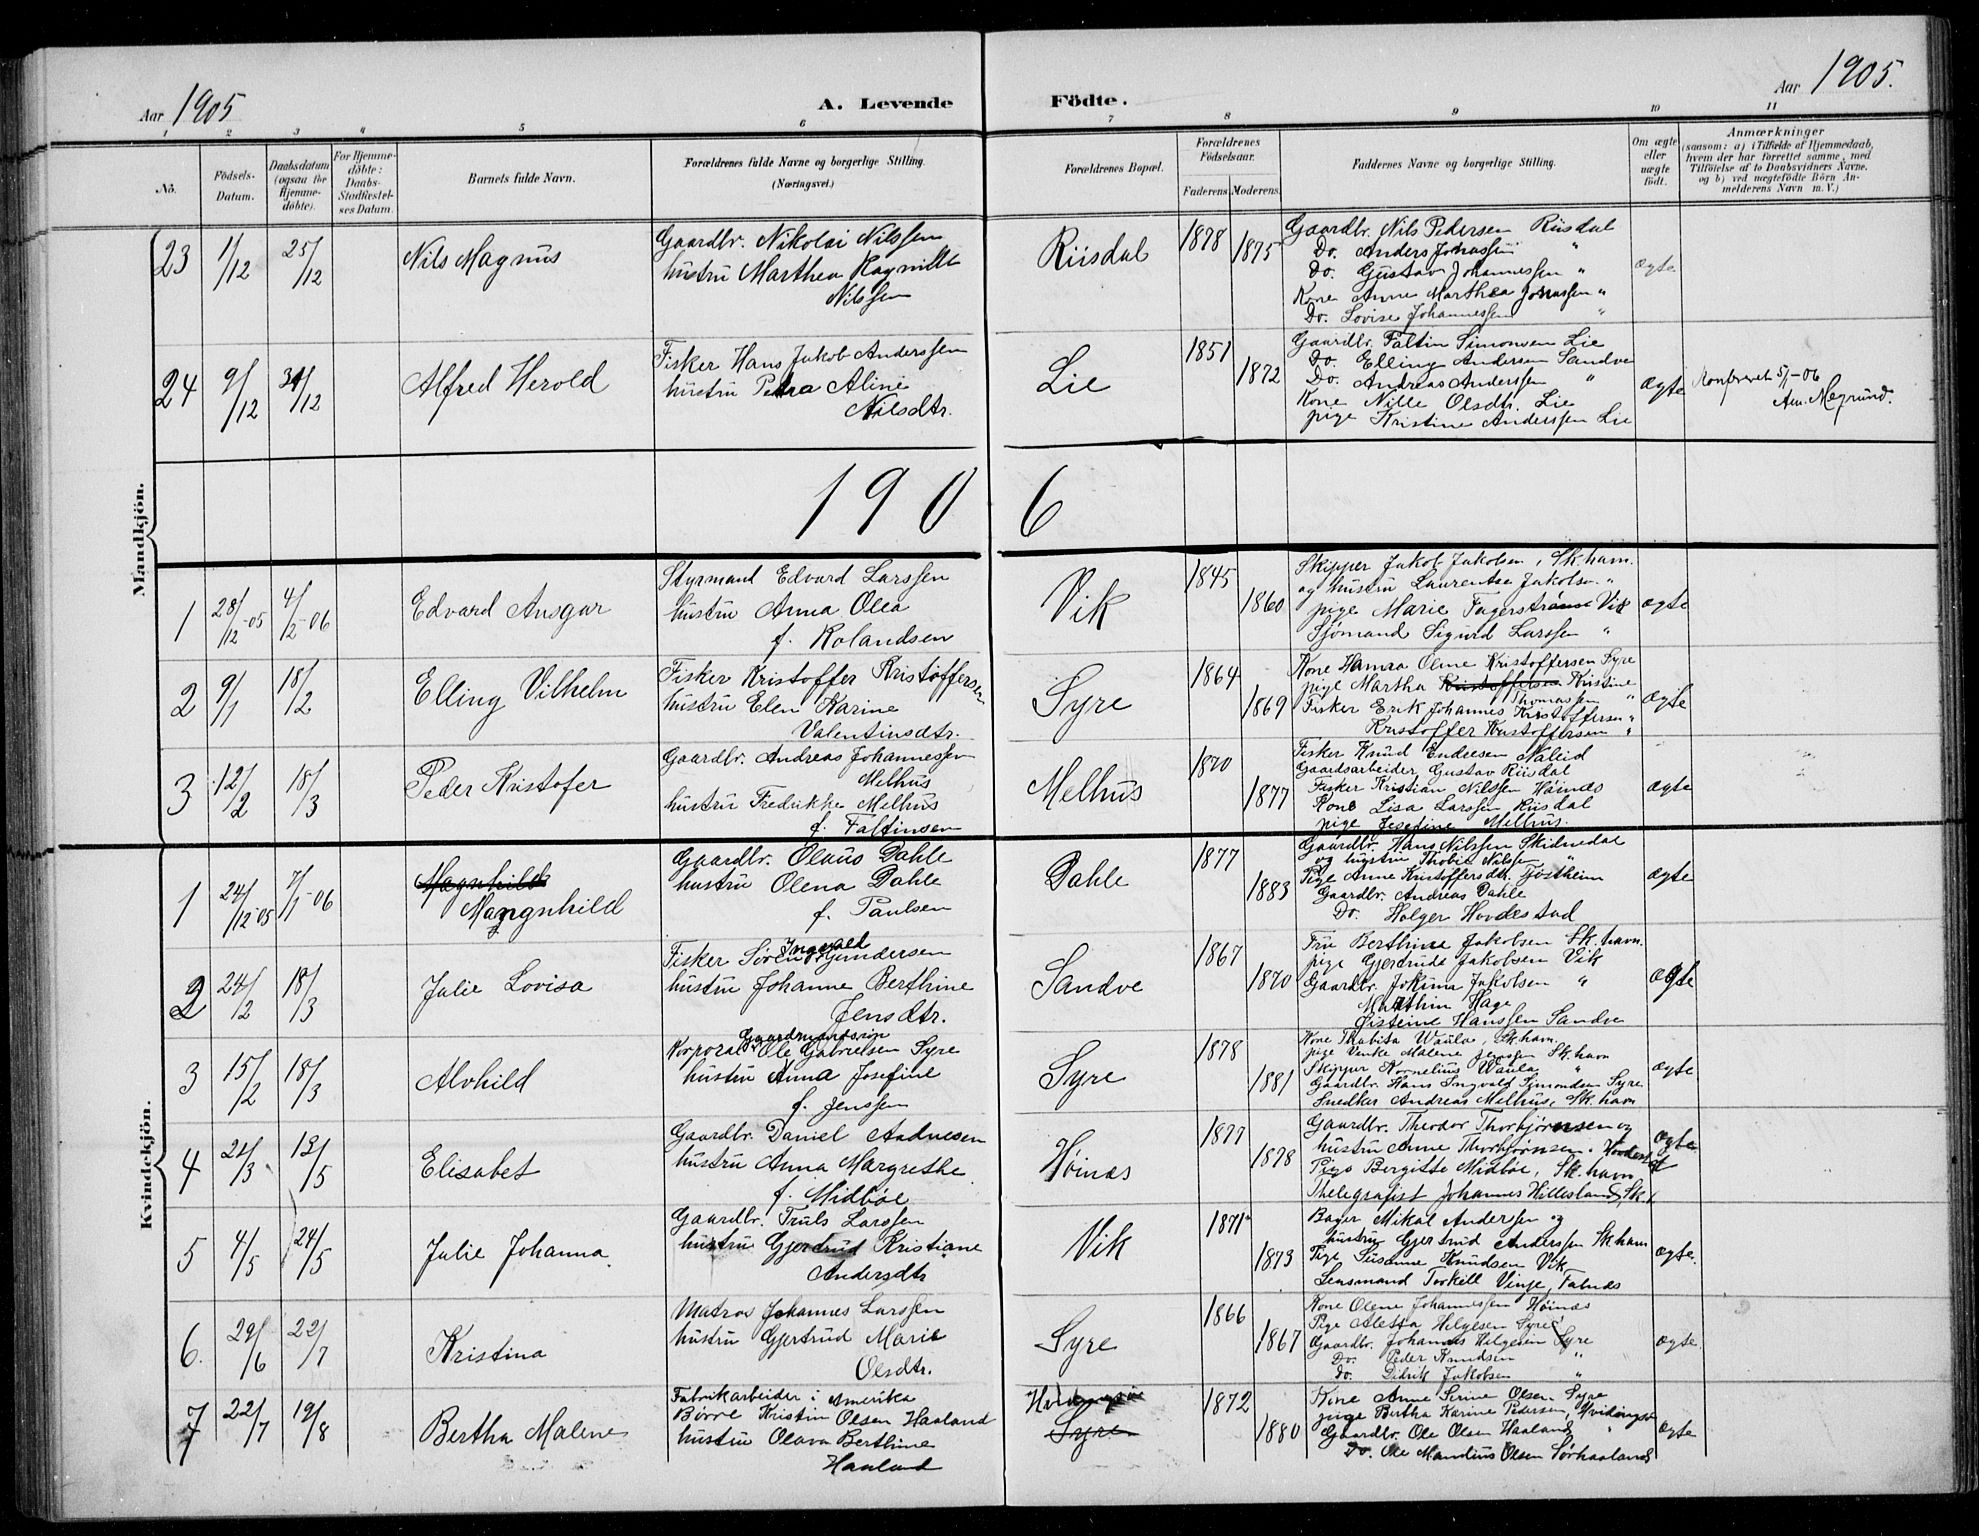 Aar 1905
A. Levende Födte.
Aar 1905.
1 2 3 4 5 6 7 8 9 10 11
No.
Födsels-Datum.
Daabsdatum (ogsaa for Hjemme-döbte).
For Hjemme-döbte: Daabs-Stadfæstel-ses Datum.
Barnets fulde Navn.
Forældrenes fulde Navne og borgerlige Stilling. (Næringsvei.)
Forældrenes Bopæl.
Forældrenes Födselsaar.
Faderens. Moderens.
Faddernes Navne og borgerlige Stilling.
Om ægte eller uægte födt.
Anmærkninger
(saasom: a) i Tilfælde af Hjemmedaab, hvem der har forrettet samme, med Tilföielse af to Daabsvidners Navne, og b) ved uægtefödte Börn An-melderens Navn m. V.)
Mandkjön.
23 1/12 25/12 Nils Magnus
Gaardbr. Nikolai Nilssen
hustru Marthea Ragnilde
Nilssen
Riisdal 1878 1875
Gaardbr. Nils Pedersen Riisdal
Do. Anders Johnssen "
Do. Gustav Johannessen "
Kone Anne Marthea Jonassen "
Do. Lovise Johannessen "
ægte
24 9/12 31/12 Alfred Herold
Fisker Hans Jakob Anderssen
hustru Petra Aline
Nilsdtr.
Lie 1851 1872
Gaardbr. Faltin Simonsen Lie
Do. Elling Andersen Sandve
Do. Andreas Anderssen "
Kone Nille Olsdtr. Lie
pige Kristine Anderssen Lie
ægte
Konfereret 5/1-06
1906
1 28/12-05 4/2-06 Edvard Ansgar
Styrmand Edvard Larssen
hustru Anna Olea
f. Rolandsen
Vik 1845 1860
Skipper Jakob Jakobsen, Sk.havn.
og hustru Laurentse Jakobsen "
pige Marie Fagerstrøm Vik
Sjömand Sigurd Larssen "
ægte
2 9/1 18/2 Elling Vilhelm
Fisker Kristoffer Kristoffersen
hustru Elen Karine
Valentinsdtr.
Syre 1864 1869
Kone Hanna Oline Kristoffersen Syre
pige Martha Kristoffersen Kristine
Thomassen "
Fisker Erik Johannes Kristoffersen "
Kristoffer Kristoffersen "
ægte
3 12/2 18/3 Peder Kristofer
Gaardbr. Andreas Johannessen
Melhus
hustru Fredrikke Melhus
f. Faltinsen
Melhus 1870 1877
Fisker Knud Endresen Naleid
Gaardsarbeider Gustav Riisdal
Fisker Kristian Nilssen Høinæs
Kone Lisa Larssen Riisdal
pige Josefine Melhus.
ægte
Kvindekjön.
1 24/12-05 7/1-06 Magnhild
Mangnhild
Gaardbr. Olaus Dahle
hustru Olena Dahle
f. Paulsen
Dahle 1877 1883
Gaardbr. Hans Nilssen Skidnedal
og hustru Thobie Nilssen "
Pige Anne Kristoffersdtr. Tjøstheim
Gaardbr. Andreas Dahle
Do. Holger Hovdestad
ægte
2 24/2 18/3 Julie Lovisa
Fisker Søren Ingvald Gundersen
hustru Johanne Berthine
Jensdtr.
Sandve 1867 1870
Frue Berthine Jakobsen Sk.havn.
pige Gjertrude Jakobsen Vik
Gaardbr. Jokima Jakobsen "
Mathin Hage
Øisteine Hanssen Sandve
ægte
3 15/2 18/3 Alvhild
Gaardmandssøn
Korporal Ole Gabrielsen Syre
hustru Anna Josefine
f. Jenssen
Syre 1878 1881
Kone Thabita Waula, Sk.havn.
pige Vinke Malene Jenssen Sk.havn
Skipper Kornelius Waula "
Gaardbr. Hans Ingvald Simondsen Syre
Snedker Andreas Melhus, Sk.havn
ægte
4 21/3 13/5 Elisabet
Gaardbr. Daniel Andresen
hustru Anna Margrethe
f. Midbøe
Høinæs 1877 1878
Gaardbr. Theodor Thorbjørnsen og
hustru Anne Thorbjørnsen. Hovdestad
Pige Bergitte Midbøe, Sk.havn
Thelegrafist Johannes Hillesland, Sk.
ægte
5 4/5 24/5 Julie Johanna.
Gaardbr. Truls Larssen
hustru Gjertrud Kristiane
Andersdtr
Vik 1871 1873
Bager Mikal Andersen og
hustru Gjertrud Anderssen Sk.havn
Pige Susanne Knudsen Vik
Lensmand Torkell Vinje, Falnæs
ægte.
6. 29/6 22/7 Kristina
Matros Johannes Larssen
hustru Gjertrud Marie
Olsdtr.
Syre 1866 1867
Kone Olene Johannessen Høinæs
Pige Aletta Helgesen Syre
Gaardbr. Johannes Helgesen Syre
Do. Peder Knudsen "
Do. Didrik Jakobsen "
ægte
7 22/7 19/8 Bertha Malene
Fabrikarbeider i Amerika
Børre Kristin Olsen Haaland
hustru Olava Berthine
Haaland
Hvidingsø
Syre
1872 1880
Kone Anne Serine Olsen Syre
pige Bertha Karine Pedersen, Hvidingsø
Gaardbr. Ole Olsen Haaland "
Do. Ole Mandius Olsen Sørhaaland
ægte